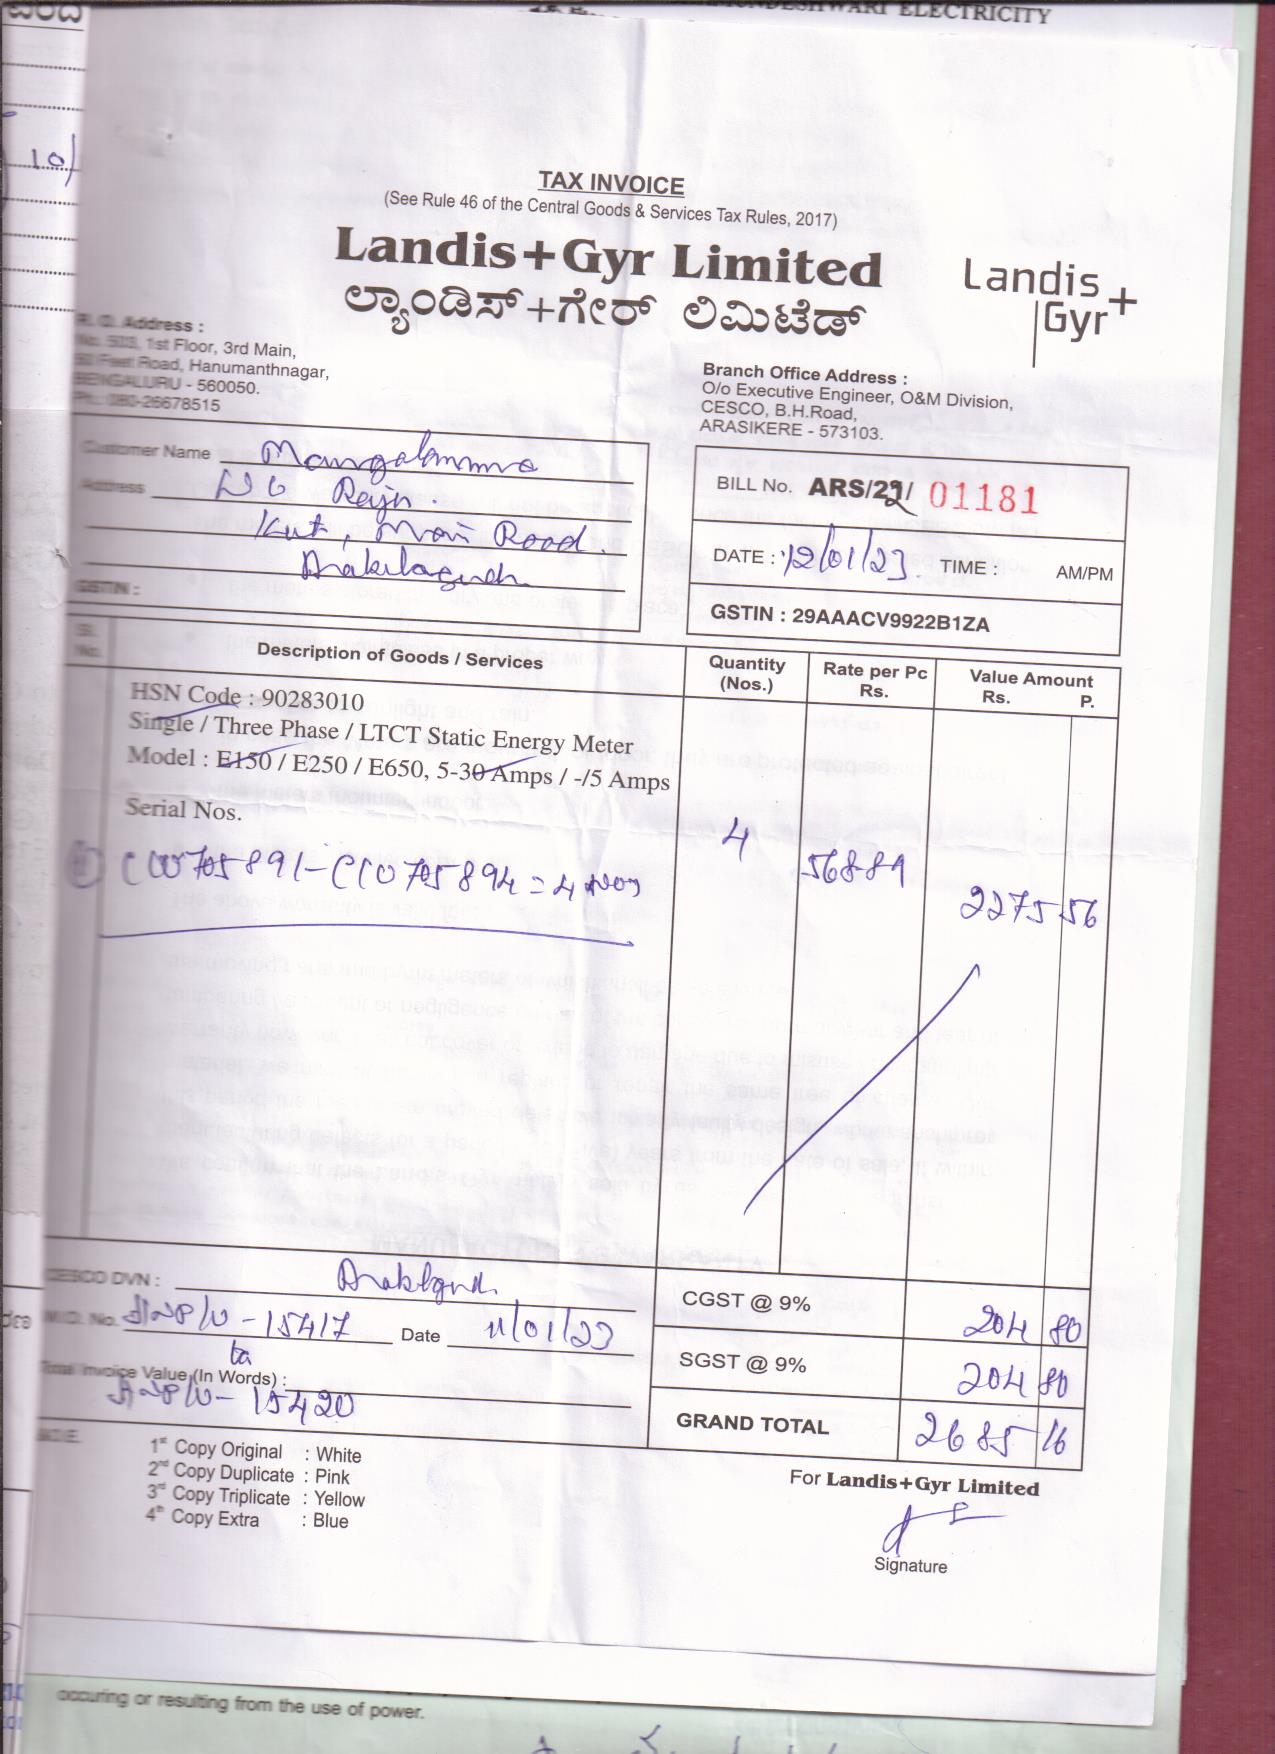 ELECTRICITY
10/
TAX INVOICE
(See Rule 46 of the Central Goods & Services Tax Rules, 2017)
Landis+Gyr Limited
ಲ್ಯಾಂಡಿಸ್+ಗೇರ್ ಲಿಮಿಟೆಡ್
Landis
Gyr+
R. O. Address :
No. 503, 1st Floor, 3rd Main,
80 Feet Road, Hanumanthnagar,
BENGALURU - 560050.
Ph.: 080-26678515
Branch Office Address :
O/o Executive Engineer, O&M Division,
CESCO, B.H.Road,
ARASIKERE - 573103.
Customer Name Mangalamma
Address W/o Raju.
Kut, Main Road
Arakalagudu
GSTIN :
BILL No. ARS/22/ 01181
DATE : 12/01/23. TIME : AM/PM
GSTIN : 29AAACV9922B1ZA
Sl. No. Description of Goods / Services Quantity (Nos.) Rate per Pc Rs. Value Amount Rs. P.
HSN Code : 90283010
Single / Three Phase / LTCT Static Energy Meter
Model : E150 / E250 / E650, 5-30 Amps / -/5 Amps
Serial Nos.
705891 - 705894 = 4 Nos 4 568-89 2275 56
CESCO DVN : Arakalgudu
CGST @ 9% 204 80
W.O. No. - 15417 Date 11/01/23
to
SGST @ 9% 204 80
Total Invoice Value (In Words) :
- 15420
GRAND TOTAL 2685 16
NOTE
1st Copy Original : White
2nd Copy Duplicate : Pink
3rd Copy Triplicate : Yellow
4th Copy Extra : Blue
For Landis+Gyr Limited
Signature
occuring or resulting from the use of power.